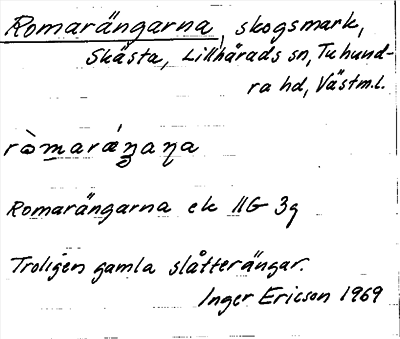 Romarängarna, skogsmark,
Skästa, Lillhärads sn, Tuhund-
ra hd, Västm.l.
ròmaráŋaɳa
Romarängarna ek 11G 3g
Troligen gamla slåtterängar.
Inger Ericson 1969